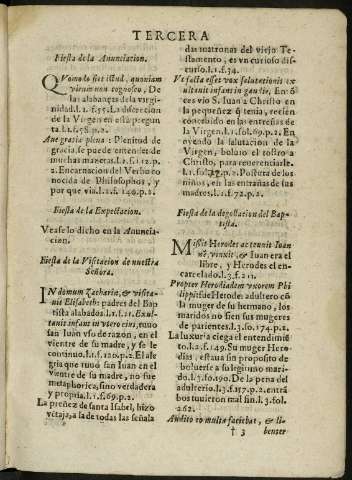 TERCERA
Fiesta de la Anunciacion.
QVomodo fiet istud, quoniam
virum non cognosco, De
las alabanças de la virgi-
nidad.l.1.f.55.La discrecion
de la Virgen en esta pregun
ta.l.1.f.58.p.2.
Aue gratia plena: Plenitud de
gracia,se puede entender de
muchas maneras.l.1.f.112.p.
2.Encarnacion del Verbo co
nocida de Philosophos, y
por que via.l.2.f. 140.p.2.
Fiesta de la Expectacion.
Vease lo dicho en la Anuncia-
cion.
Fiesta de la Visitacion de nuestra
Señora.
IN domum Zachariæ, & visita-
uit Elisabeth: padres del Bap
tista alabados.l.1.f.21.Exul-
tauit infans in vtero eius, tuuo
san Iuan vso de razon, en el
vientre de su madre, y se le
continuo.l.1.f.120.p.2.El ale
gria que tuuo san Iuan en el
vientre de su madre, no fue
metaphorica, sino verdadera
y propria.l.1.f.69.p.2.
La preñez de santa Isabel, hizo
vẽtaja, a la de todas las señala
das matronas del viejo Te-
stamento, es vn curioso dis-
curso.l.1.f.34.
Vt facta est et vox salutationis ex
ultauit infans in gaudio, En-
ces vio S. Iuan a Christo en
la pequeñez q̃ tenia, recien
concebido en las entrañas de
la Virgen.l.1.fol.69.p.2. En
oyendo la salutacion de la
Virgen, boluio el rostro a
Christo, para reuerenciarle.
p.2. Postura de los
niños, en las entrañas de sus
madres.l.1.f.72.p.2.
Fiesta de la degollacion del Bap-
tista.
MIsit Herodes ac tenuit Ioan
nẽ, vinxit, & Iuan era el
libre, y Herodes el en-
carcelado.l.3.f.211.
Propter Herodiadem vxorem Phi
lippi:fue Herode adultero cõ
la muger de su hermano, los
maridos no sien sus mugeres
de parientes.l.3.fo.174.p.2.
La luxuria ciega el entendimiẽ
to.l.2.f.149.Su muger Hero-
dias, estaua sin proposito de
boluerse a su legitimo mari-
do.l.3.fo.190.De la pena del
adulterio.l.3.f.157.p.2.entrã
bos tuuieron mal fin.l.3.fol.
262.
Audito eo multa faciebat, & li-
† 3 benter